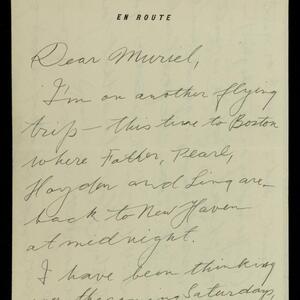 EN ROUTE
Dear Muriel,
I'm on another flying
trip – this time to Boston
where Father, Pearl,
Hayden and Ling are –
back to New Haven
at midnight.
I have been thinking
Saturday,